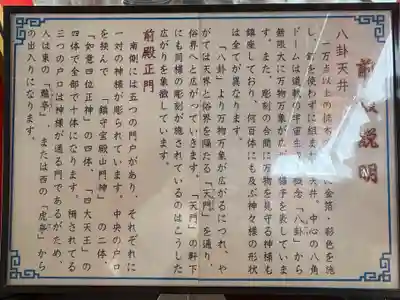 前殿説明
八卦天井
一万点以上の
し、釘を使わずに組ま
天井。中心の八角
ドームは道教の宇宙生
概念「八卦」から
無限大に万物万象が広が
様子を表していま
す。また、彫刻の合間に万物を見守る神様も
鎮座しており、何百体にも及ぶ神々様の形状
は全てが異なります。
「八卦」より万物万象が広がるにつれ、や
がては天界と俗界を隔たる「天門」を通り、
俗界へと広がっていきます。「天門」の軒下
にも同様の彫刻が施されているのはこうした
広がりを象徴しています。
前殿正門
南側には五つの門戸があり、それぞれに
一対の神様が彫られています。中央の戸口
を挟んで「鎮守宮殿山門神」の二体、
「如意四位正神」の四体、「四大天王」の
四体で全部で十体になります。柵されてる
三つの戸口は神様が通る門であるがため、
人は東の「龍亭」、または西の「虎亭」から
の出入りになります。